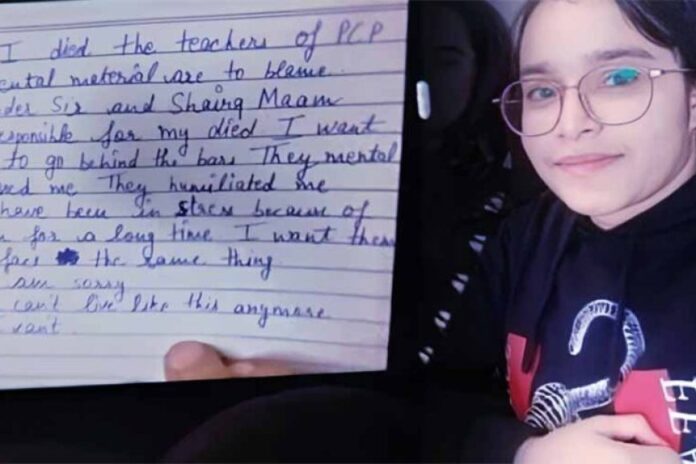 I died the teachers of PCP
material are to blame
Sir and Shairq Maam
for my died I want
to go behind the bars They mental
me They humiliated me
have been in stress because of
for a long time I want them
face the same thing
am sorry
can't live like this anymore
can't